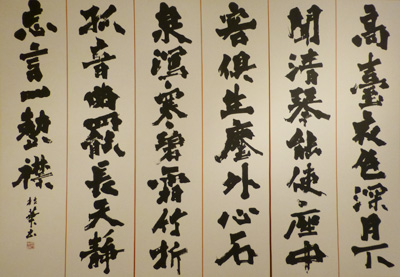 高臺夜色深月下
聞清琴能使座中
客俱生塵外心石
泉寒碧霜竹折
孤音曲罷長天靜
忘言一整襟